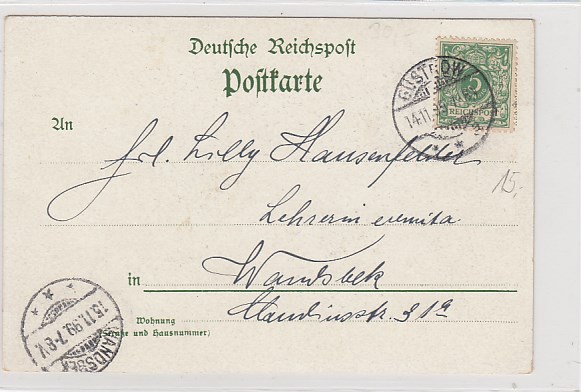 Deutsche Reichspost
Postkarte
GÜSTROW
14.11.
5
REICHSPOST
An
Frl. Lilly Hausenfelder
15,-
Lehrerin
in Wandsbek
Claudiusstr. 31a
Wohnung
(Straße und Hausnummer)
WANDSBEK
15.11.99.7-8V.